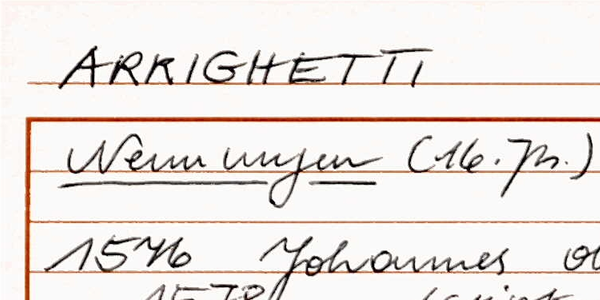 ARRIGHETTI
Nennungen (16. Jh.)
1576 Johannes